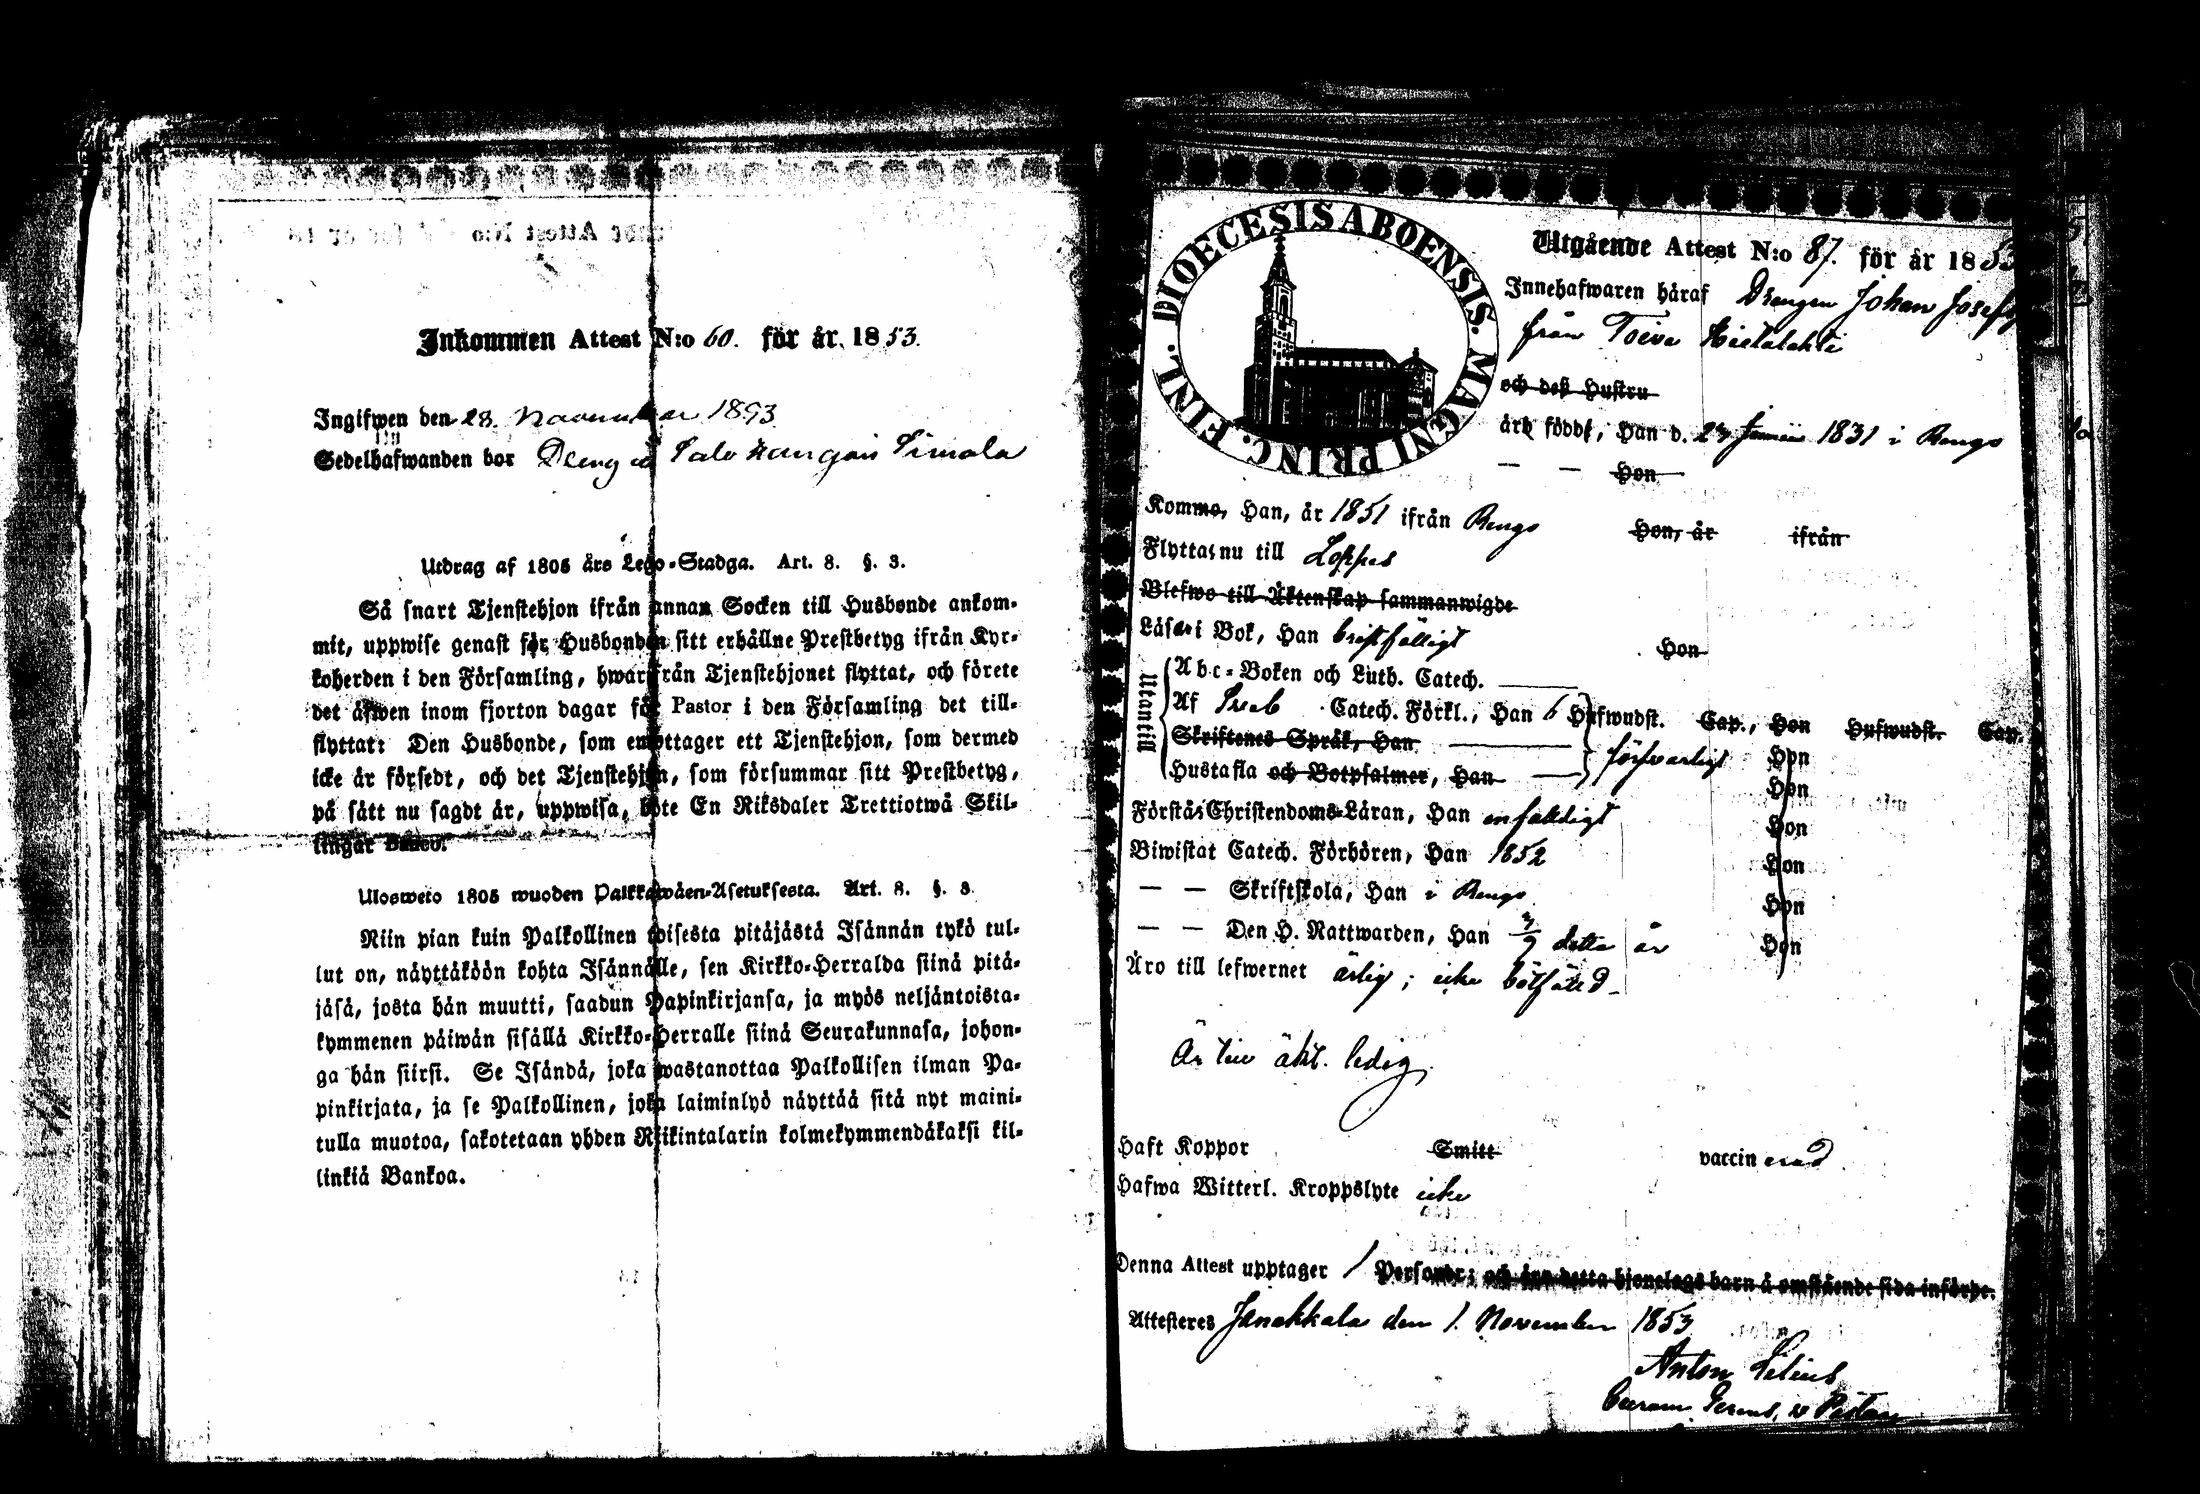 Inkommen Attest N:o 60. för år 1853.
Ingifwen den 28. November 1853
Sedelhafwanden bor Dreng å Salo Kaurjais Simola
Utdrag af 1805 års Lego-Stadga. Art. 8. §. 3.
Så snart Tjenstehjon ifrån annan Socken till Husbonde ankom-
mit, uppwise genast för Husbonden sitt erhållne Prestbetyg ifrån Kyr-
koherden i den Församling, hwarifrån Tjenstehjonet flyttat, och förete
det äfwen inom fjorton dagar för Pastor i den Församling det till-
flyttat: Den Husbonde, som emottager ett Tjenstehjon, som dermed
icke är försedt, och det Tjenstehjon, som försummar sitt Prestbetyg,
på sätt nu sagdt är, uppwisa, böte En Riksdaler Trettiotwå Skil-
lingar Banco.
Ulosweto 1805 wuoden Palkkawäen-Asetuksesta. Art. 8. §. 3.
Niin pian kuin Palkollinen toisesta pitäjästä Isännän tykö tul-
lut on, näyttäköön kohta Isännälle, sen Kirkko-Herralda siinä pitä-
jäsä, josta hän muutti, saadun Papinkirjansa, ja myös neljäntoista-
kymmenen päiwän sisällä Kirkko-Herralle siinä Seurakunnasa, johon-
ga hän siirsi. Se Isändä, joka wastanottaa Palkollisen ilman Pa-
pinkirjata, ja se Palkollinen, joka laiminlyö näyttää sitä nyt maini-
tulla muotoa, sakotetaan yhden Riikintalarin kolmekymmendäkaksi kil-
linkiä Bankoa.
DIOECESIS ABOENSIS. MAGNI PRINC. FINL.
Utgående Attest N:o 87. för år 1853
Innehafwaren häraf Drengen Johan Josefs
från Toivo Hietalahti
och deß Hustru
äro födde, Han d. 27 Junii 1831 i Rengo
— — Hon
Komme, Han, år 1851 ifrån Rengo Hon, år ifrån
Flyttas nu till Loppis
Blefwo till Äktenskap sammanwigde
Läsa i Bok, Han bristfälligt Hon
Utantill
Abc-Boken och Luth. Catech.
Af Sveb Catech. Förkl., Han 6 Hufwudst. Cap., Hon Hufwudst. Cap.
Skriftenes Språk, Han försvarligt Hon
Hustafla och Botpsalmer, Han Hon
Förstå Christendoms-Läran, Han enfaldigt Hon
Biwistat Catech. Förhören, Han 1852 Hon
— — Skriftskola, Han i Rengo Hon
— — Den H. Nattwarden, Han detta år Hon
Äro till lefwernet ärlig; icke bötfäld
Är till äkt. ledig.
Haft Koppor Smitt vaccinerad
Hafwa Witterl. Kroppslyte icke
Denna Attest upptager 1 Personer; och äro detta hjonelags barn å omstående sida införde.
Attesteres Janakkala den 1. November 1853
Anton Lilius